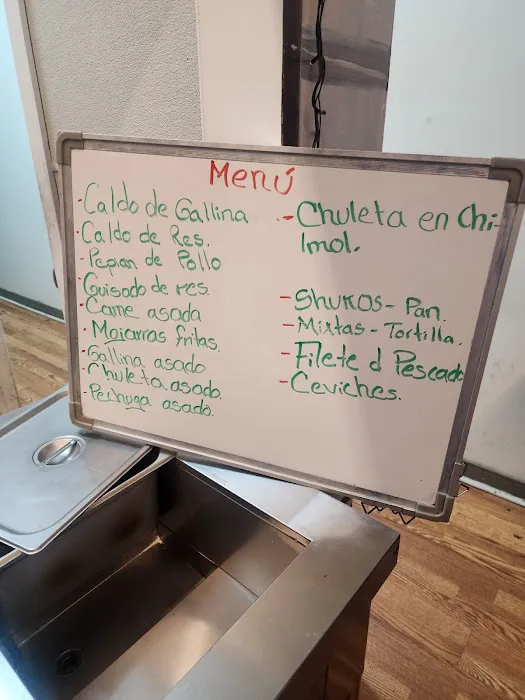 Menú
Caldo de Gallina
Caldo de Res.
Pepian de Pollo
Guisado de res.
Carne asada
Mojarras fritas.
Gallina asado
Chuleta asado.
Pechuga asado.
Chuleta en Chi-
lmol.
Shukos - Pan.
Mixtas - Tortilla.
Filete d Pescado
Ceviches.